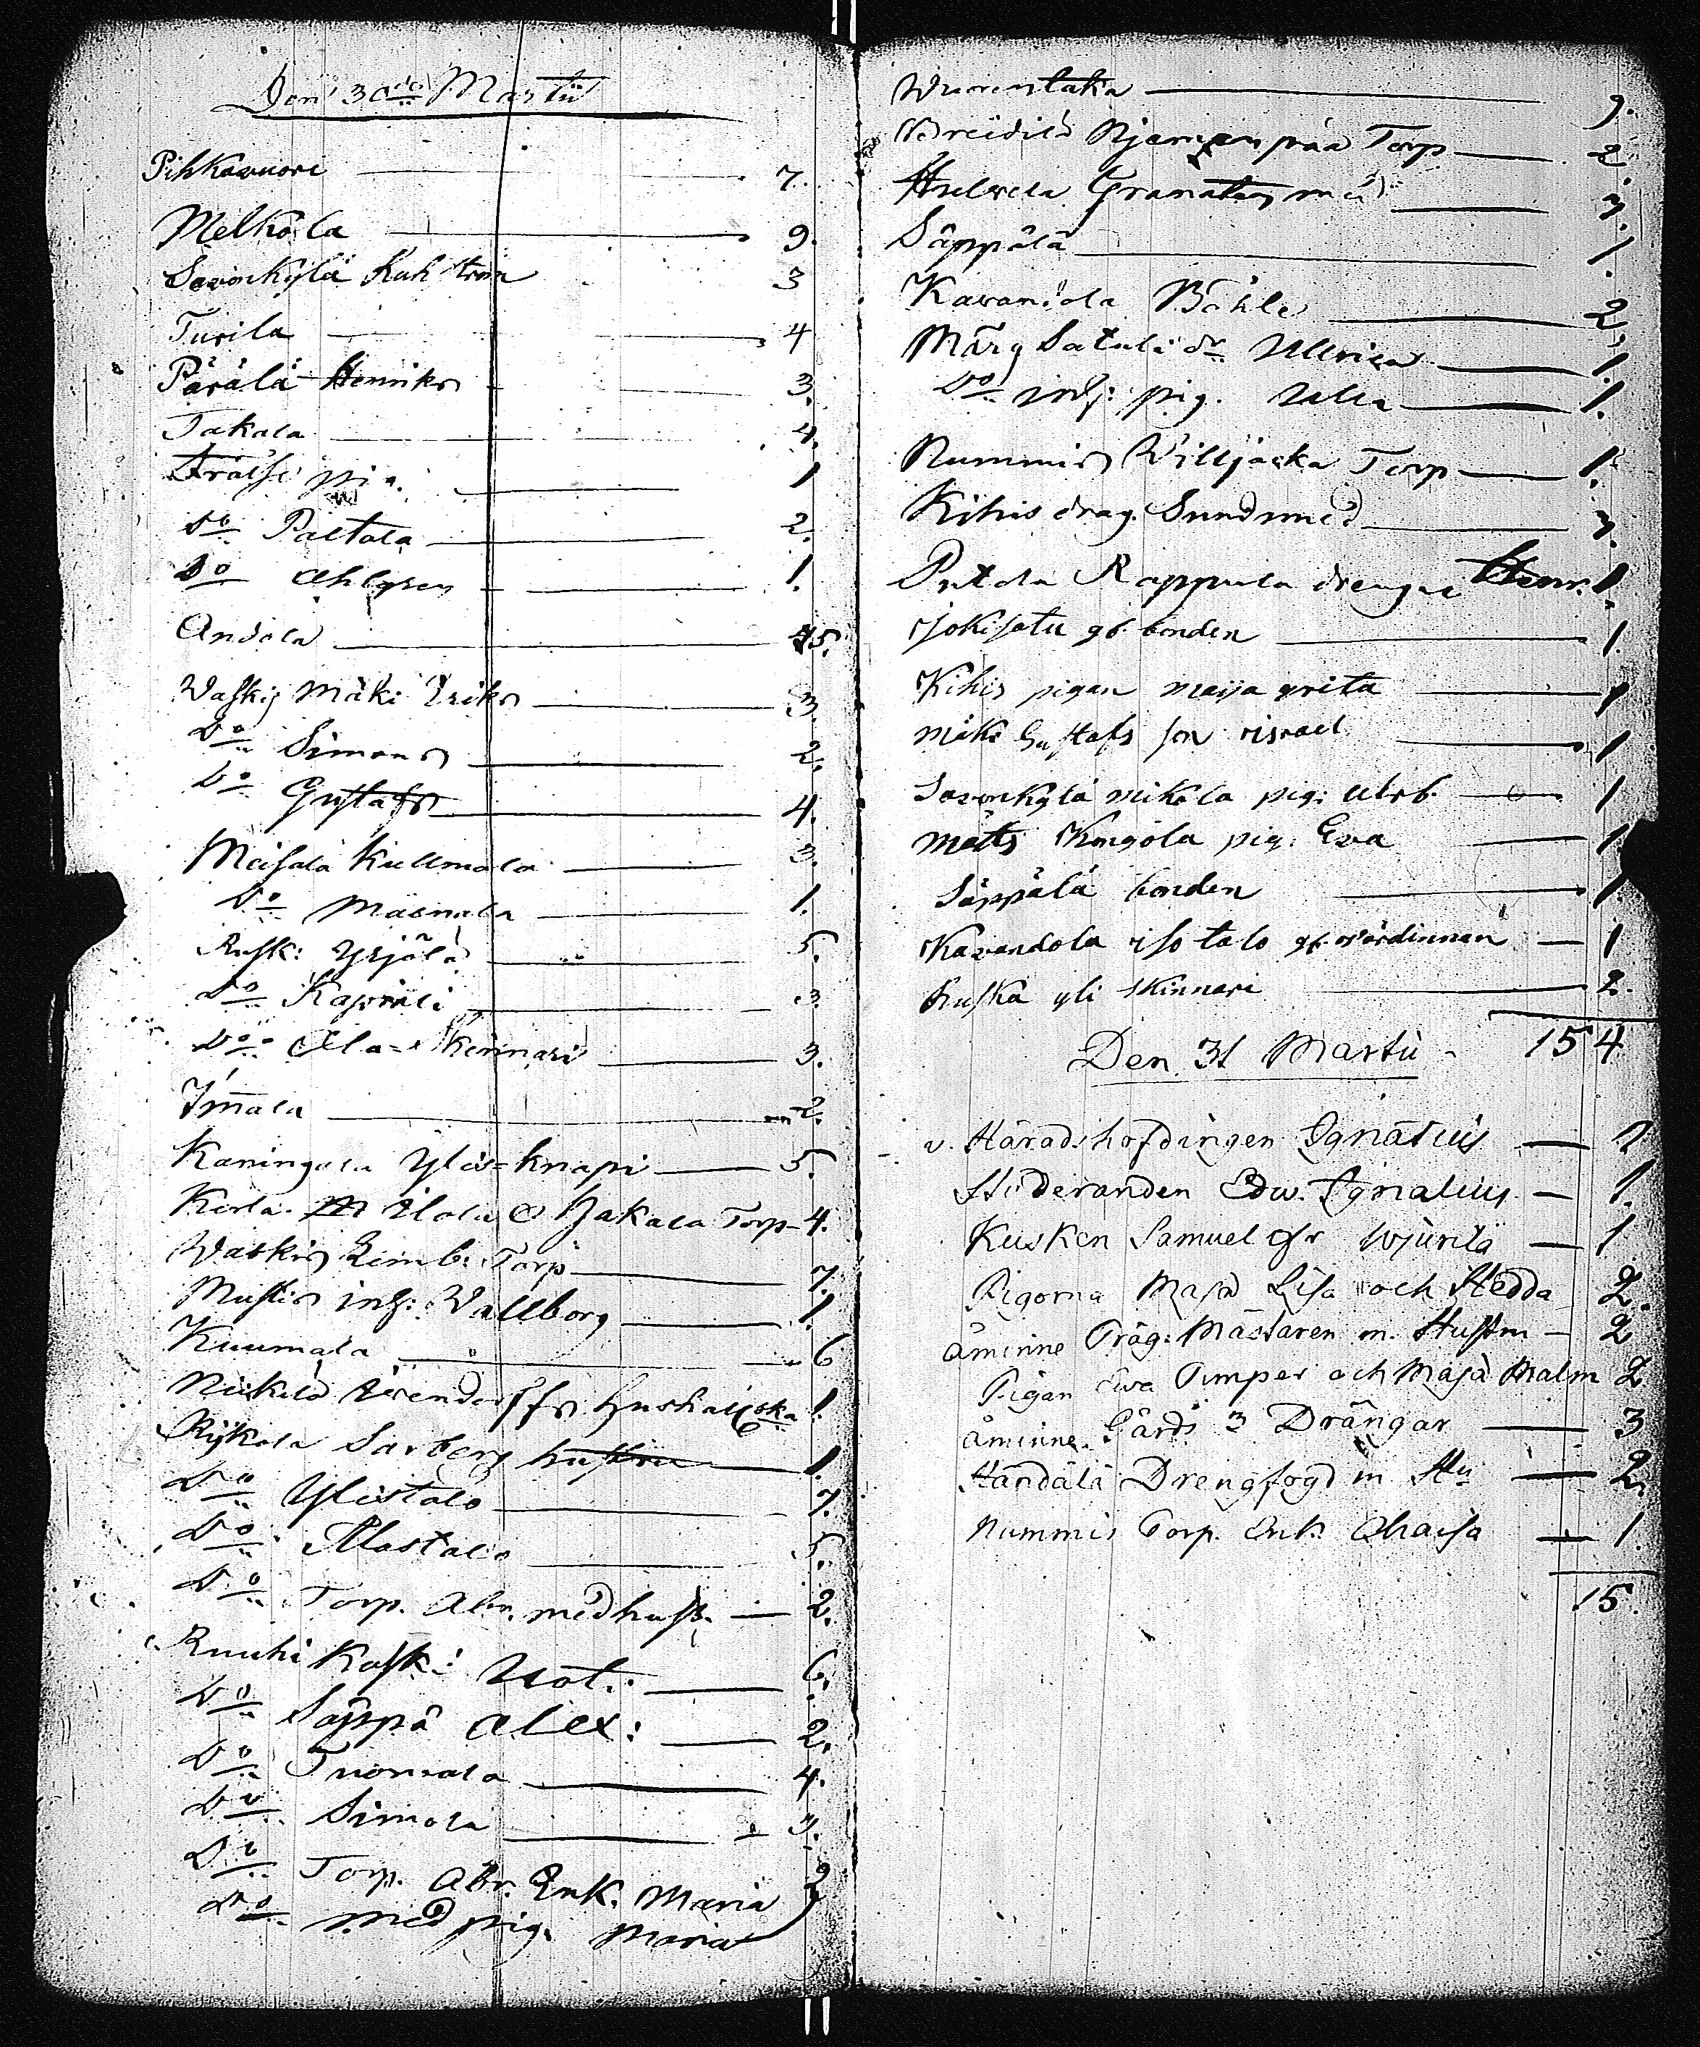 Den 30de Martii
Pihkavuori 7.
Melkola 9.
Savonkylä Kuhstrom 3
Turila 4
Pärälä Henriks 3.
Takala 4.
Frälse pig. 1
Do Paltala 2.
Do Ahlgren 1.
Andola 5.
Waskis Mäki Eriks 3.
Do Simons 2.
Do Gustafs 4.
Meisala Kullmala 3.
Do Mäenala 1.
Rusk: Yrjölä 5.
Do Kaprali 3.
Do Ala=Skinnari 3.
Immala 2.
Kaningala Ylis=knapi 5.
Kerla Ilola o Jakala Torp 4.
Waskis Limb: Torp 7.
Mustis inh: Wallborg 1.
Kuumala 6
Nickilä hushållska 1.
Rykola Sarberg hustru 1.
Do Ylistalo 7.
Do Alastalo 5.
Do Torp. Abr. med hust. 2.
Ruuhi Koski Uot. 6.
Do Säppä Alex: 2.
Do Tuomala 4.
Do Simola 3.
Do Torp. Abr. Enk. Maria
Do med pig. Maria 2
Wuorentaka 9.
Torp 2
Hulvela Granaten med 3.
Säppälä 1
Kavandola Böhle 2.
Märy Satulä dr. Ullrica 1.
Do inh: pig. Ulla 1.
Nummis Willjacka Torp 1.
Kihis drag. Sundmed 3.
Putola Rappula drenge Henr. 1
Jokisatu gb. bonden 1.
Kihis pigan maija grita 1
mik Gustafs son israel 1
Savonkylä mikola pig: Ulrb. 1
matts Kongola pig. Eva 1
Säppälä bonden 1.
Kavandola iso talo gb. wärdinnan 1
Ruska yli skinnari 2.
154
Den 31 Martii
v. Häradshöfdingen Ignatius 2
Studeranden Edw. Ignatius 1.
Kusken Samuel fr Wjurila 1
Pigorna Maja Lisa och Hedda 2.
Åminne Träg: Mästaren m. Hustru 2
Pigan Eva Timper och Maja Malm 2
Åminne Gårds 3 Drängar 3
Händälä Drengfogd m Hu 2.
Nummis Torp. Enk. Chaisa 1.
15.